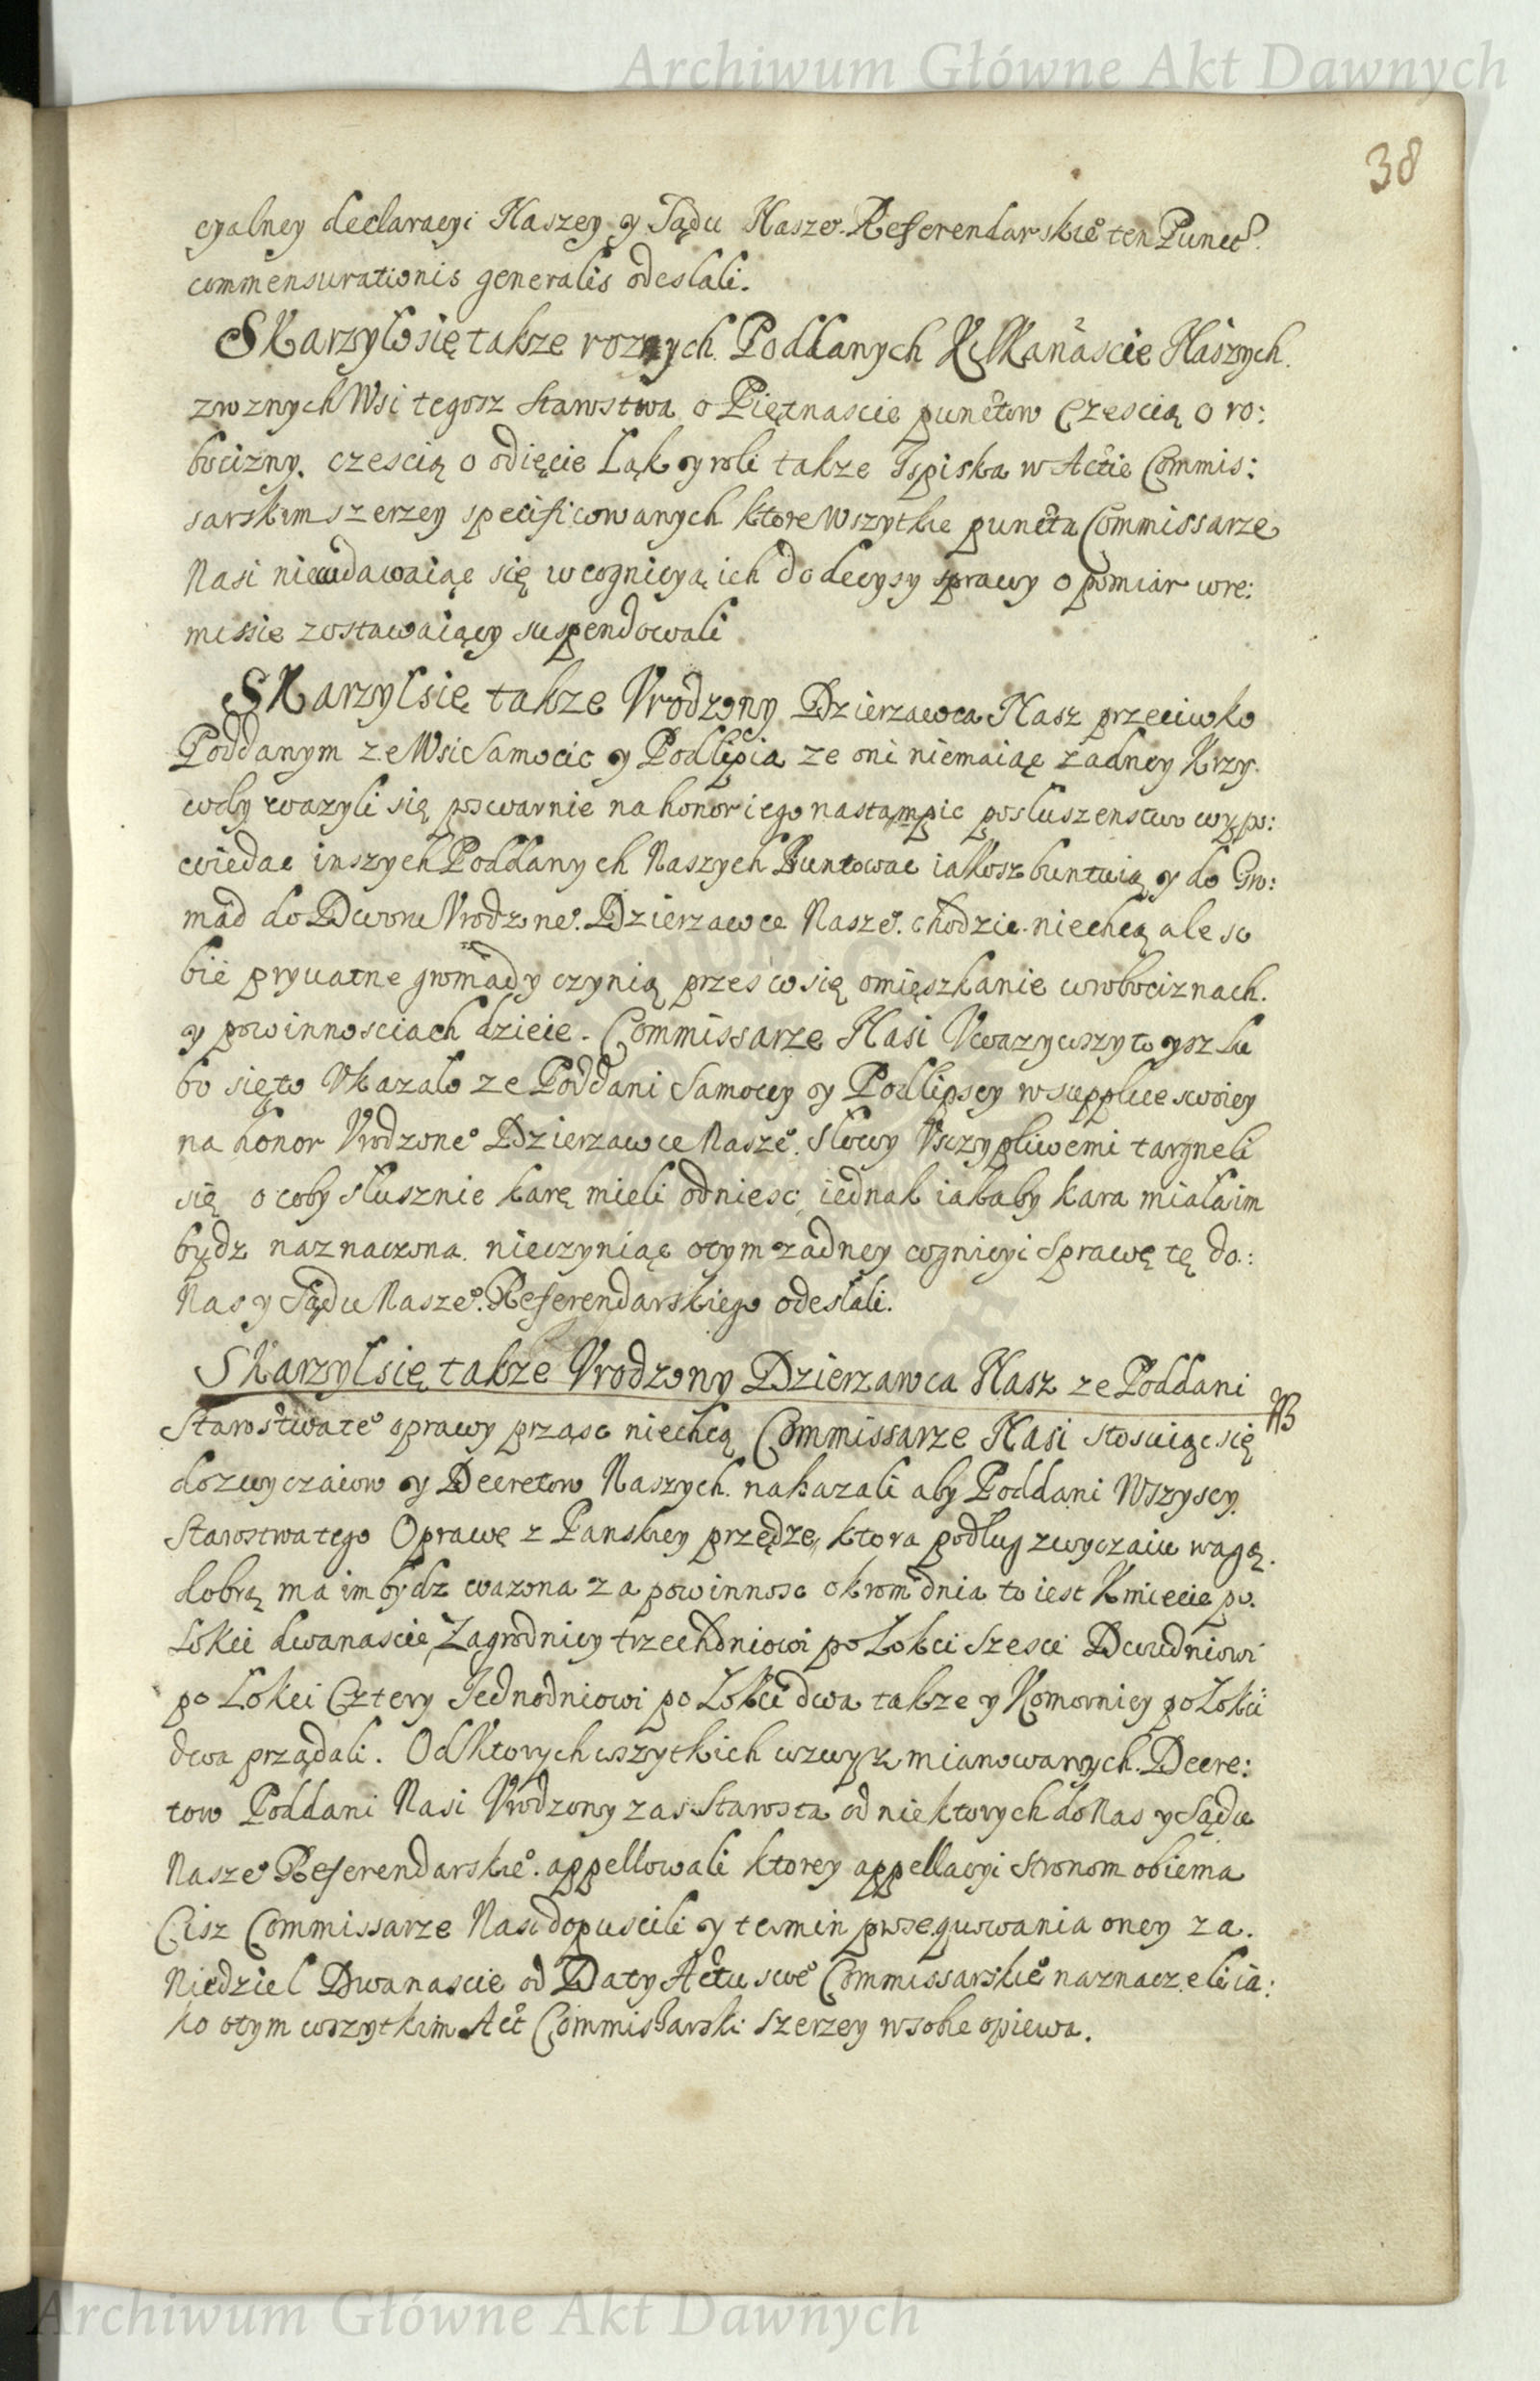 Archiwum Główne Akt Dawnych
38
cyalney declaracyi Naszey y Sądu Naszeo. Referendarskieo ten Punct
commensurationis generalis odeslali.
Skarzylo się takze roznych Poddanych Kilkanascie Naszych.
z roznych Wsi tegosz Starostwa o Piętnascie punctow Czescią o ro:
bocizny. czescią o odięcie Ląk y roli takze Ispiska w Actie Commis:
sarskim szerzey specificowanych ktore Wszytkie puncta Commissarze
Nasi niewdawaiąc się w cognicyą ich do decysy sprawy o pomiar w re:
missie zostawaiący suspendowali
Skarzyl się takze Vrodzony Dzierzawca Nasz przeciwko
Poddanym ze Wsi Samocic y Podlipia ze oni niemaiąc zadney Krzy
wdy wazyli się poswarnie na honor iego nastampic posluszenstwo wypo:
wiedac inszych Poddanych Naszych Buntowac iakosz buntuią y do Gro:
mad do Dworu Vrodzoneo. Dzierzawce Naszeo. chodzic niechcą ale so
bie prywatne gromady czynią przes co się omięszkanie w robociznach.
y powinnosciach dzieie. Commissarze Nasi Vwazywszy to ysz lu
bo się to Vkazalo ze Poddani Samoccy y Podlipscy w supplice swoiey
na honor Vrodzoneo Dzierzawce Naszeo. slowy Vszczypliwemi targneli
się o coby slusznie karę mieli odniesc, iednak iakaby kara miala im
bydz naznaczona nieczyniąc otym zadney cognicyi Sprawę tę do.:
Nas y Sądu Naszeo. Referendarskiego odeslali.
Skarzyl się takze Vrodzony Dzierzawca Nasz ze Poddani
NB
Starostwa teo oprawy prząsc niechcą Commissarze Nasi stosuiąc się
do zwyczaiow y Decretow Naszych. nakazali aby Poddani Wszyscy.
Starostwa tego Oprawę z Panskiey przędze, ktora podlug zwyczaiu wagą.
dobrą ma im bydz wazona za powinnosc okrom dnia to iest Kmiecie po.
Lokci dwanascie, Zagrodnicy trzechdniowi po Lokci szesci Dwudniowi
po Lokci Cztery Jednodniowi po Lokci dwa takze y Komornicy po Lokci
dwa prządali. Od ktorych wszytkich wzwysz mianowanych. Decre:
tow Poddani Nasi Vrodzony zas Starosta od niektorych do Nas y Sądu
Naszeo Referendarskieo. appellowali ktorey appellacyi stronom obiema
Cisz Commissarze Nasi dopuscili y termin prosequowania oney za.
Niedziel Dwanascie od Daty Actu sweo Commissarskieo naznaczeli ia:
ko otym wszytkim Act Commissarski szerzey w sobie opiewa.
Archiwum Główne Akt Dawnych